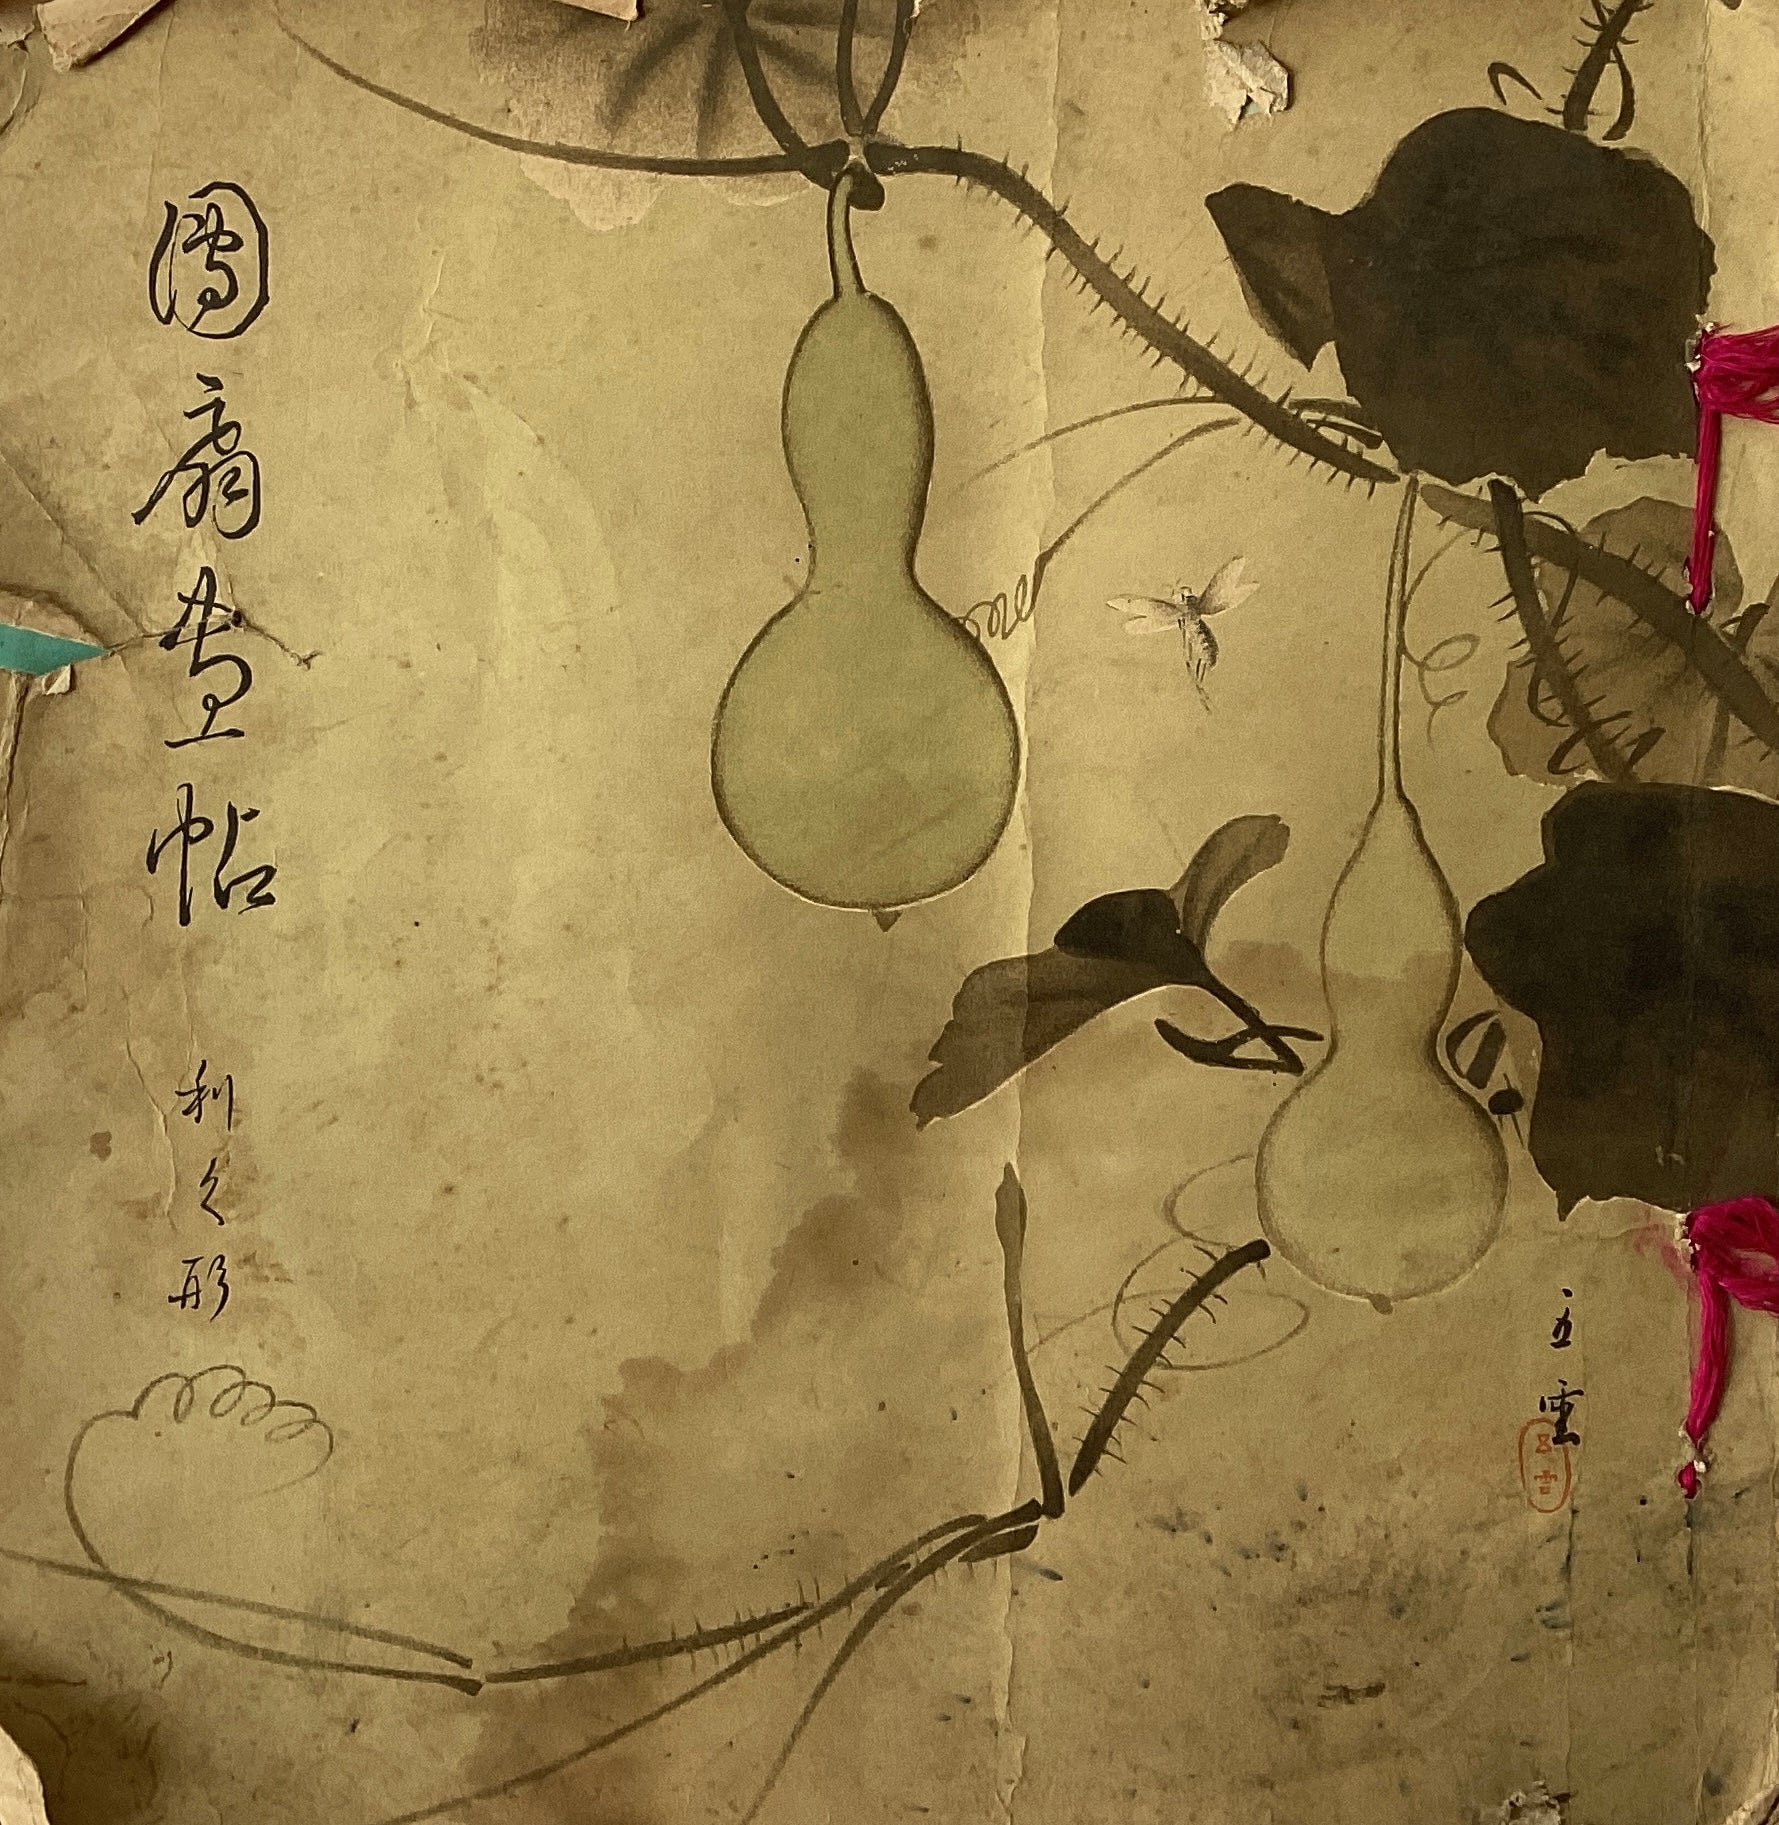 團扇畫帖 利之形
五雲
五雲